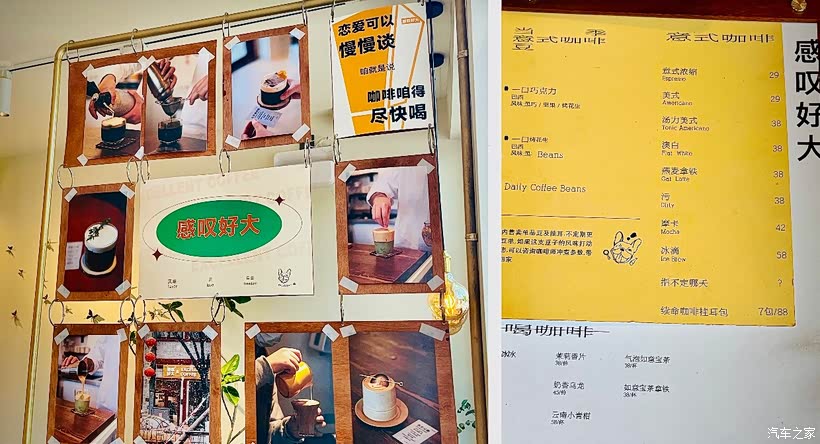 恋爱可以
慢慢谈
咱就是说
咖啡咱得
尽快喝
感叹好大
当季
意式咖啡
豆
一口巧克力
巴西
一口烤花生
巴西
Beans
Daily Coffee Beans
意式咖啡
意式浓缩 29
Espresso
美式 29
Americano
汤力美式 38
Tonic Americano
澳白 38
Flat White
燕麦拿铁 38
Oat Latte
污 38
Dity
摩卡 42
Mocha
冰滴 58
Ice Blow
指不定哪天 ?
续命咖啡挂耳包 7包/88
感叹好大
喝咖啡
茉莉香片
38/杯
气泡如意宝茶
38/杯
奶香乌龙
如意宝茶拿铁
38/杯
云南小青柑
汽车之家